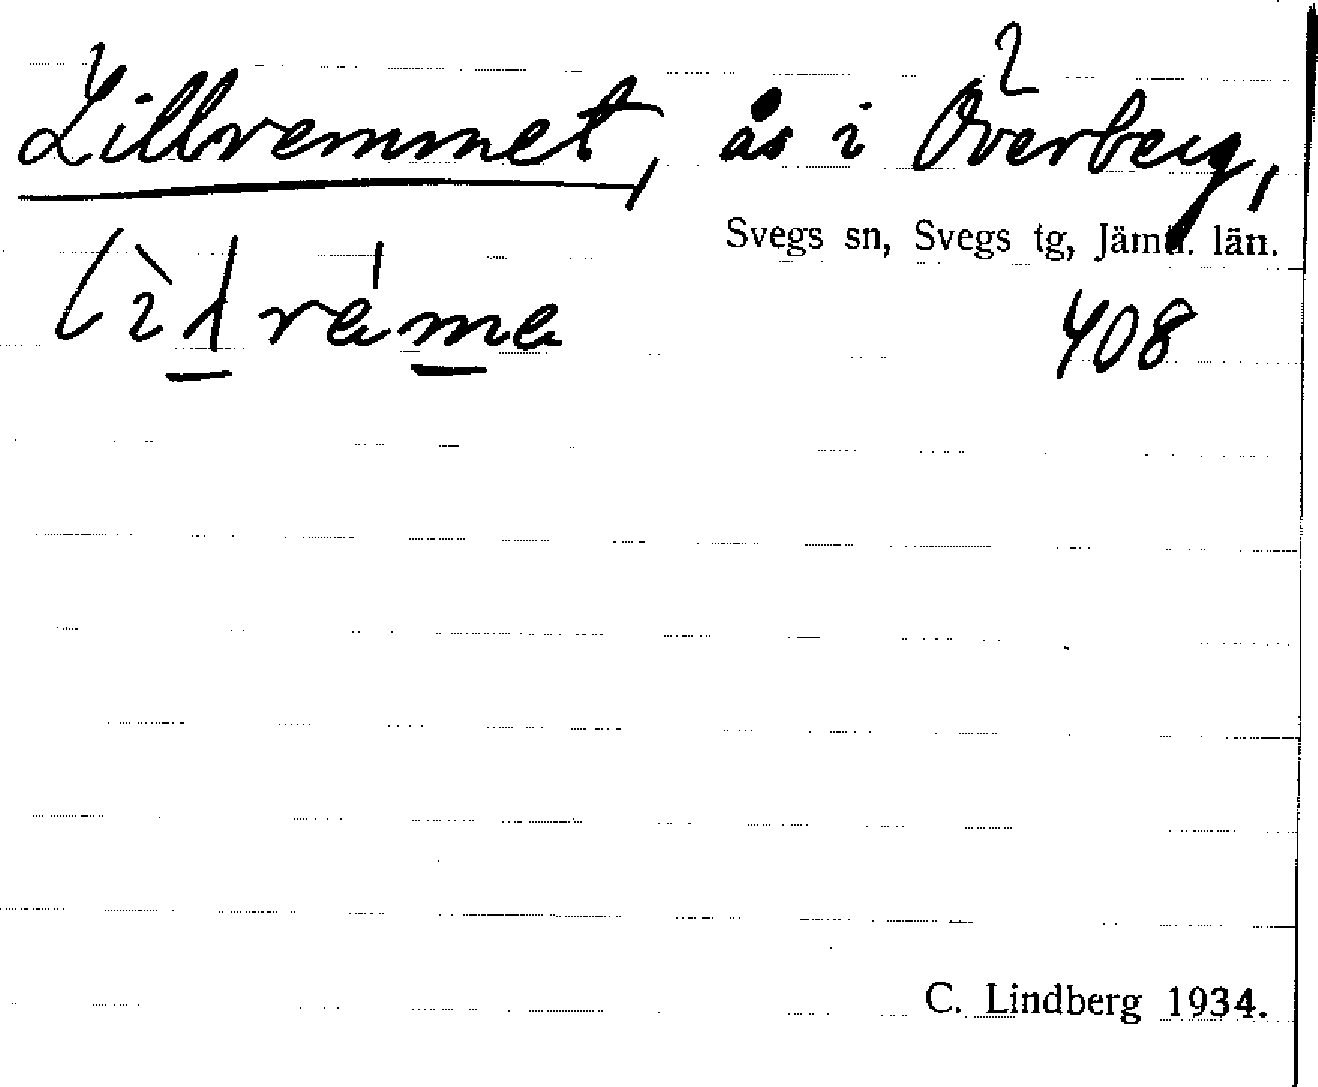 Lillremmet, ås i Överberg,
Svegs sn, Svegs tg, Jämtl. län.
408
C. Lindberg 1934.